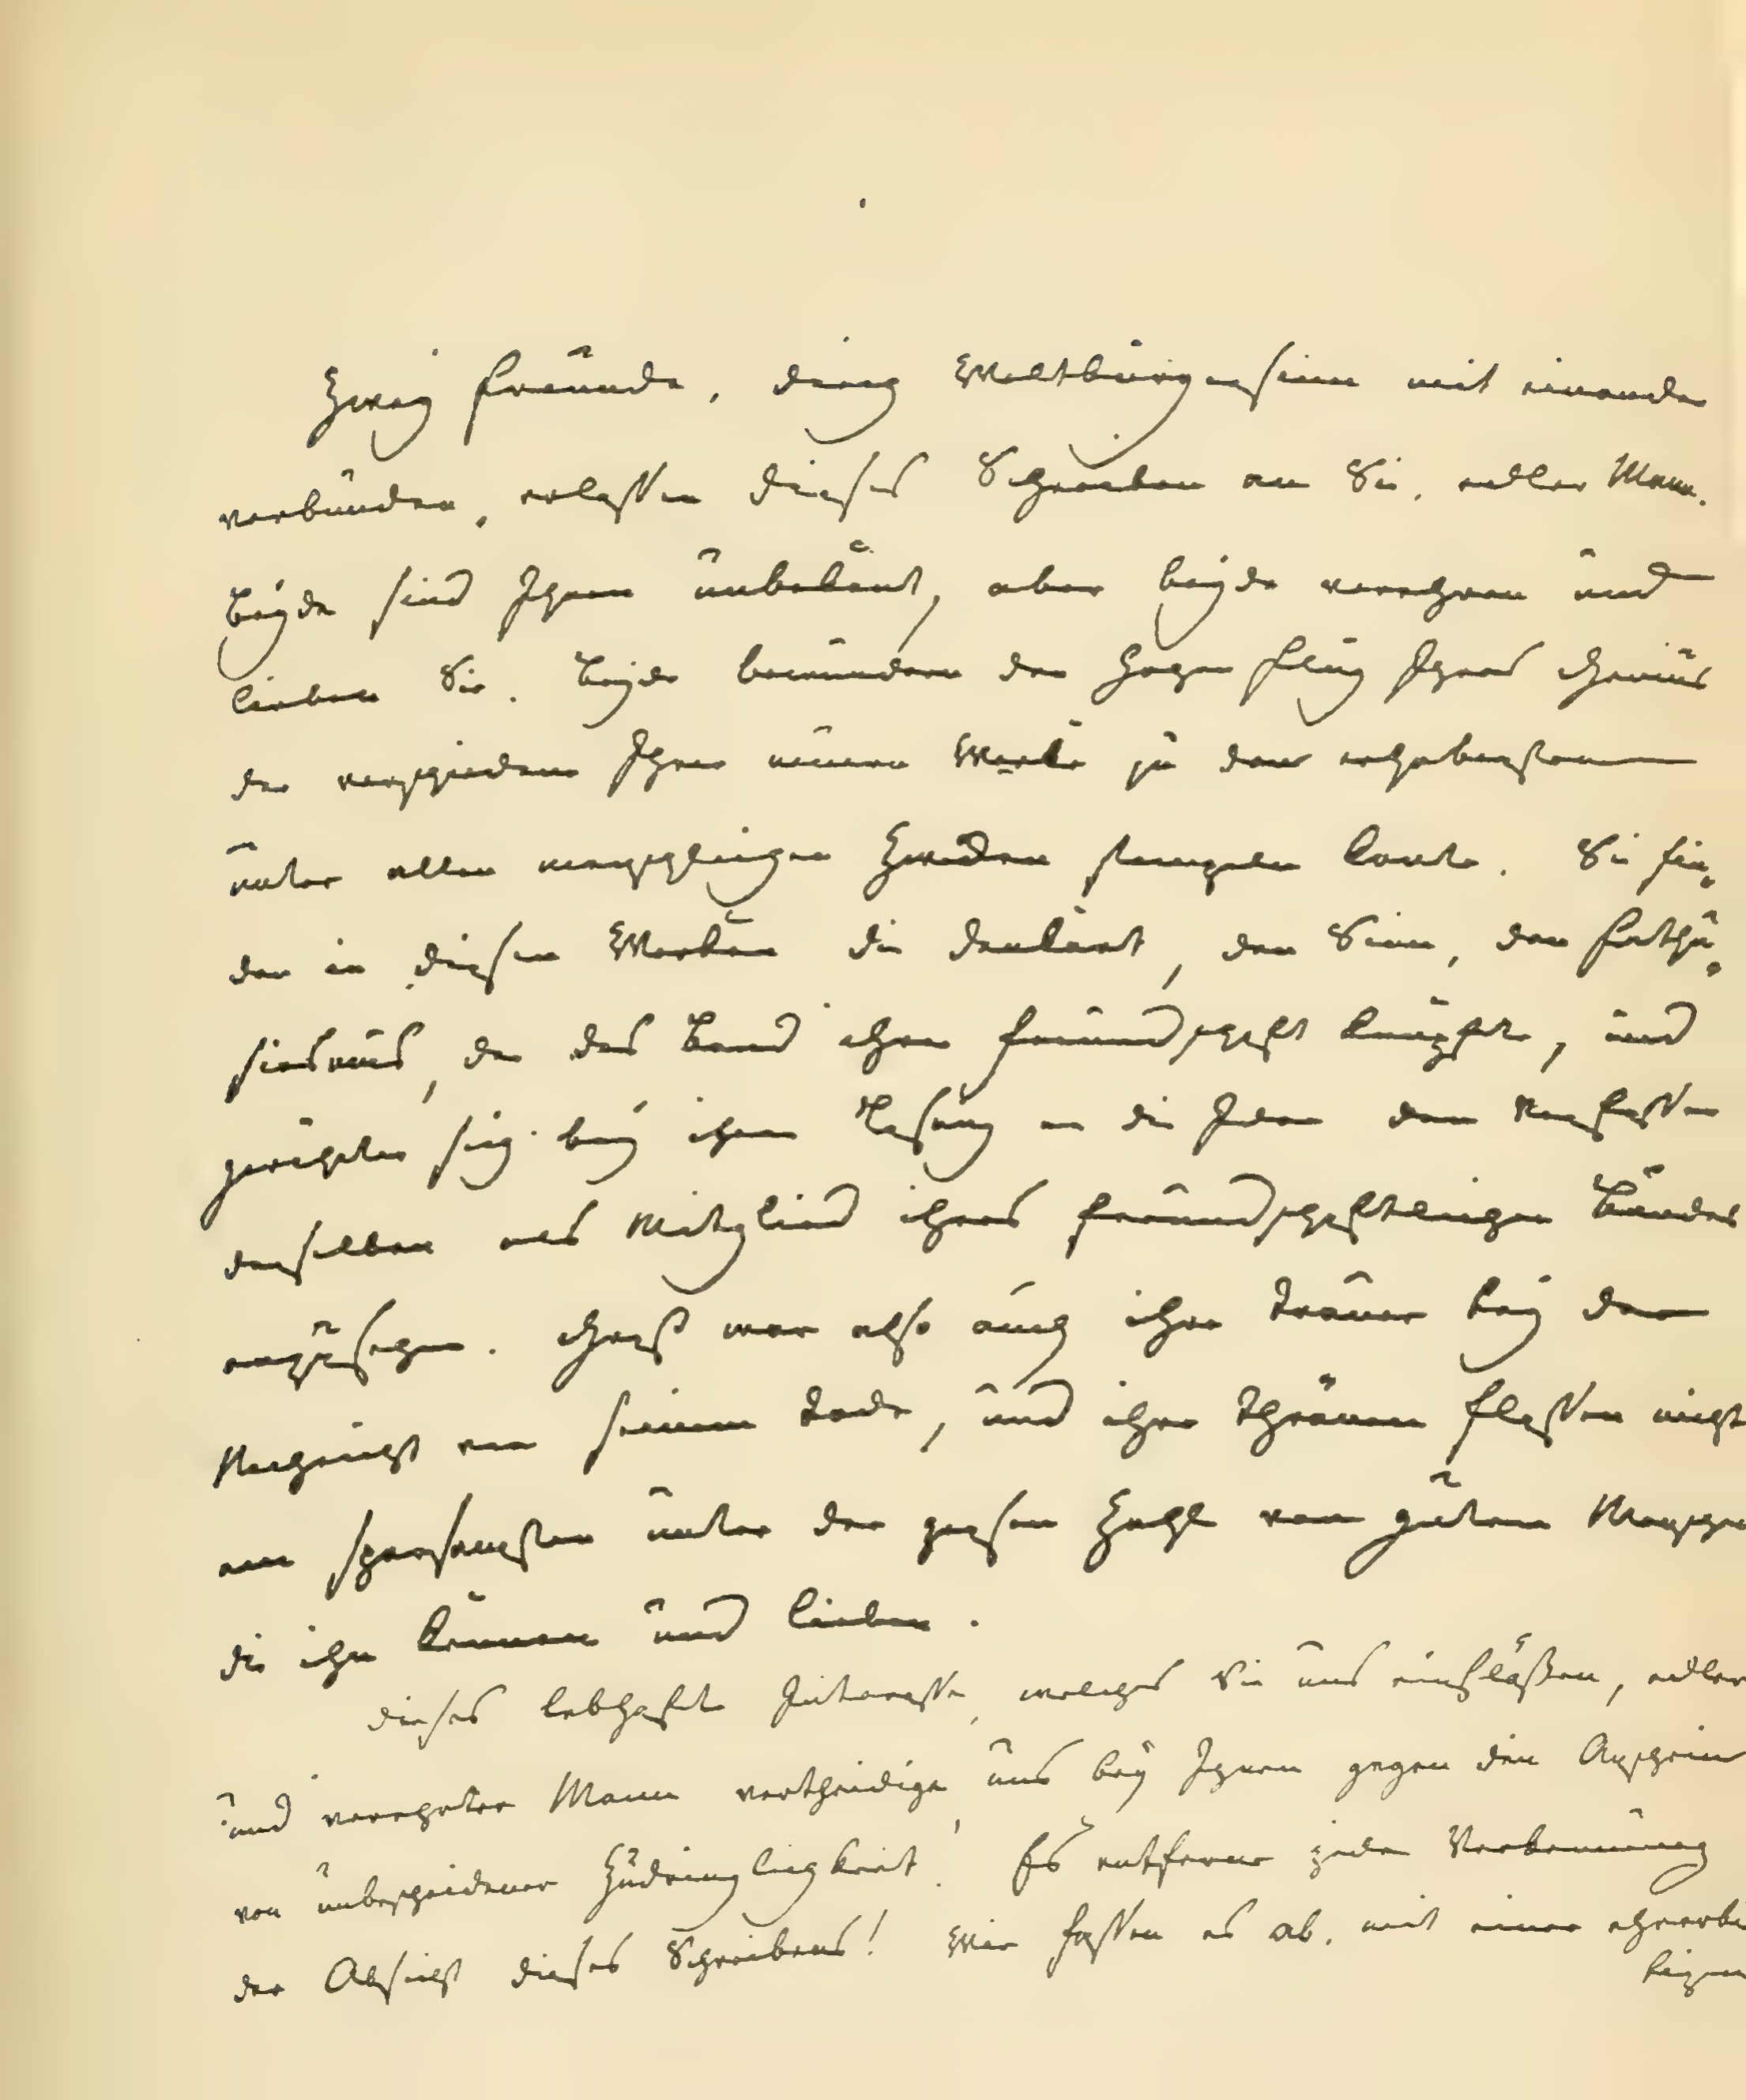 Zwey Freunde, durch Weltbürgersinn mit einander
verbunden, erlassen dieses Schreiben an Sie, edler Mann.
Beyde sind Ihnen unbekant, aber beyde verehren und
lieben Sie. Beyde bewundern den hohen Flug Ihres Genius
der verschiedene Ihrer neuern Werke zu den erhabensten
unter allen menschlichen Zwecken stempeln konte. Sie fin-
den in diesen Werken die Denkart, den Sinn, den Enthu-
siasmus, der das Band ihrer Freundschaft knüpfte, und
gewöhnten sich bey ihrer Lesung an die Idee den Verfasser
derselben als Mitglied ihres freundschaftlichen Bundes
anzusehen. Groß war also auch ihre Trauer bey der
Nachricht von seinem Tode, und ihre Thränen flossen nicht
am sparsamsten unter der großen Zahl von guten Menschen
die ihn kennen und lieben.
Dieses lebhafte Interesse, welches Sie uns einflößen, edler
und verehrter Mann vertheidige uns bey Ihnen gegen den Anschein
von unbescheidener Zudringlichkeit! Es entferne jede Verkennung
der Absicht dieses Schreibens! Wir fassen es ab, mit einer ehrerbi